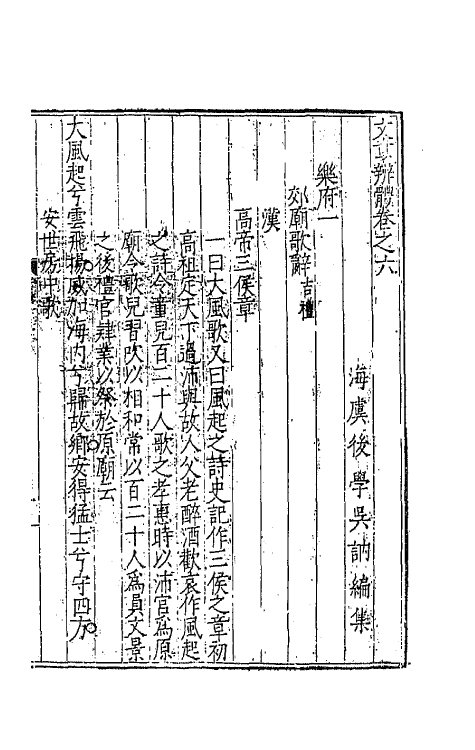 文章辨體卷之六
海虞後學吳訥編集
樂府一
郊廟歌辭吉禮
漢
高帝三侯章
一曰大風歌又曰風起之詩史記作三侯之章初
高祖定天下過沛與故人父老醉酒歡哀作風起
之詩令童兒百二十人歌之孝惠時以沛宮為原
廟令歌兒習吹以相和常以百二十人為員文景
之後禮官肄業以祭於原廟云
大風起兮雲飛揚威加海內兮歸故鄉安得猛士兮守四方
安世房中歌